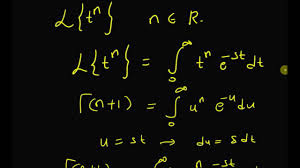 ℒ{tⁿ} n ∈ R.
ℒ{tⁿ} = ∫₀^∞ tⁿ e^(-st) dt
Γ(n+1) = ∫₀^∞ uⁿ e^(-u) du
u = st → du = s dt